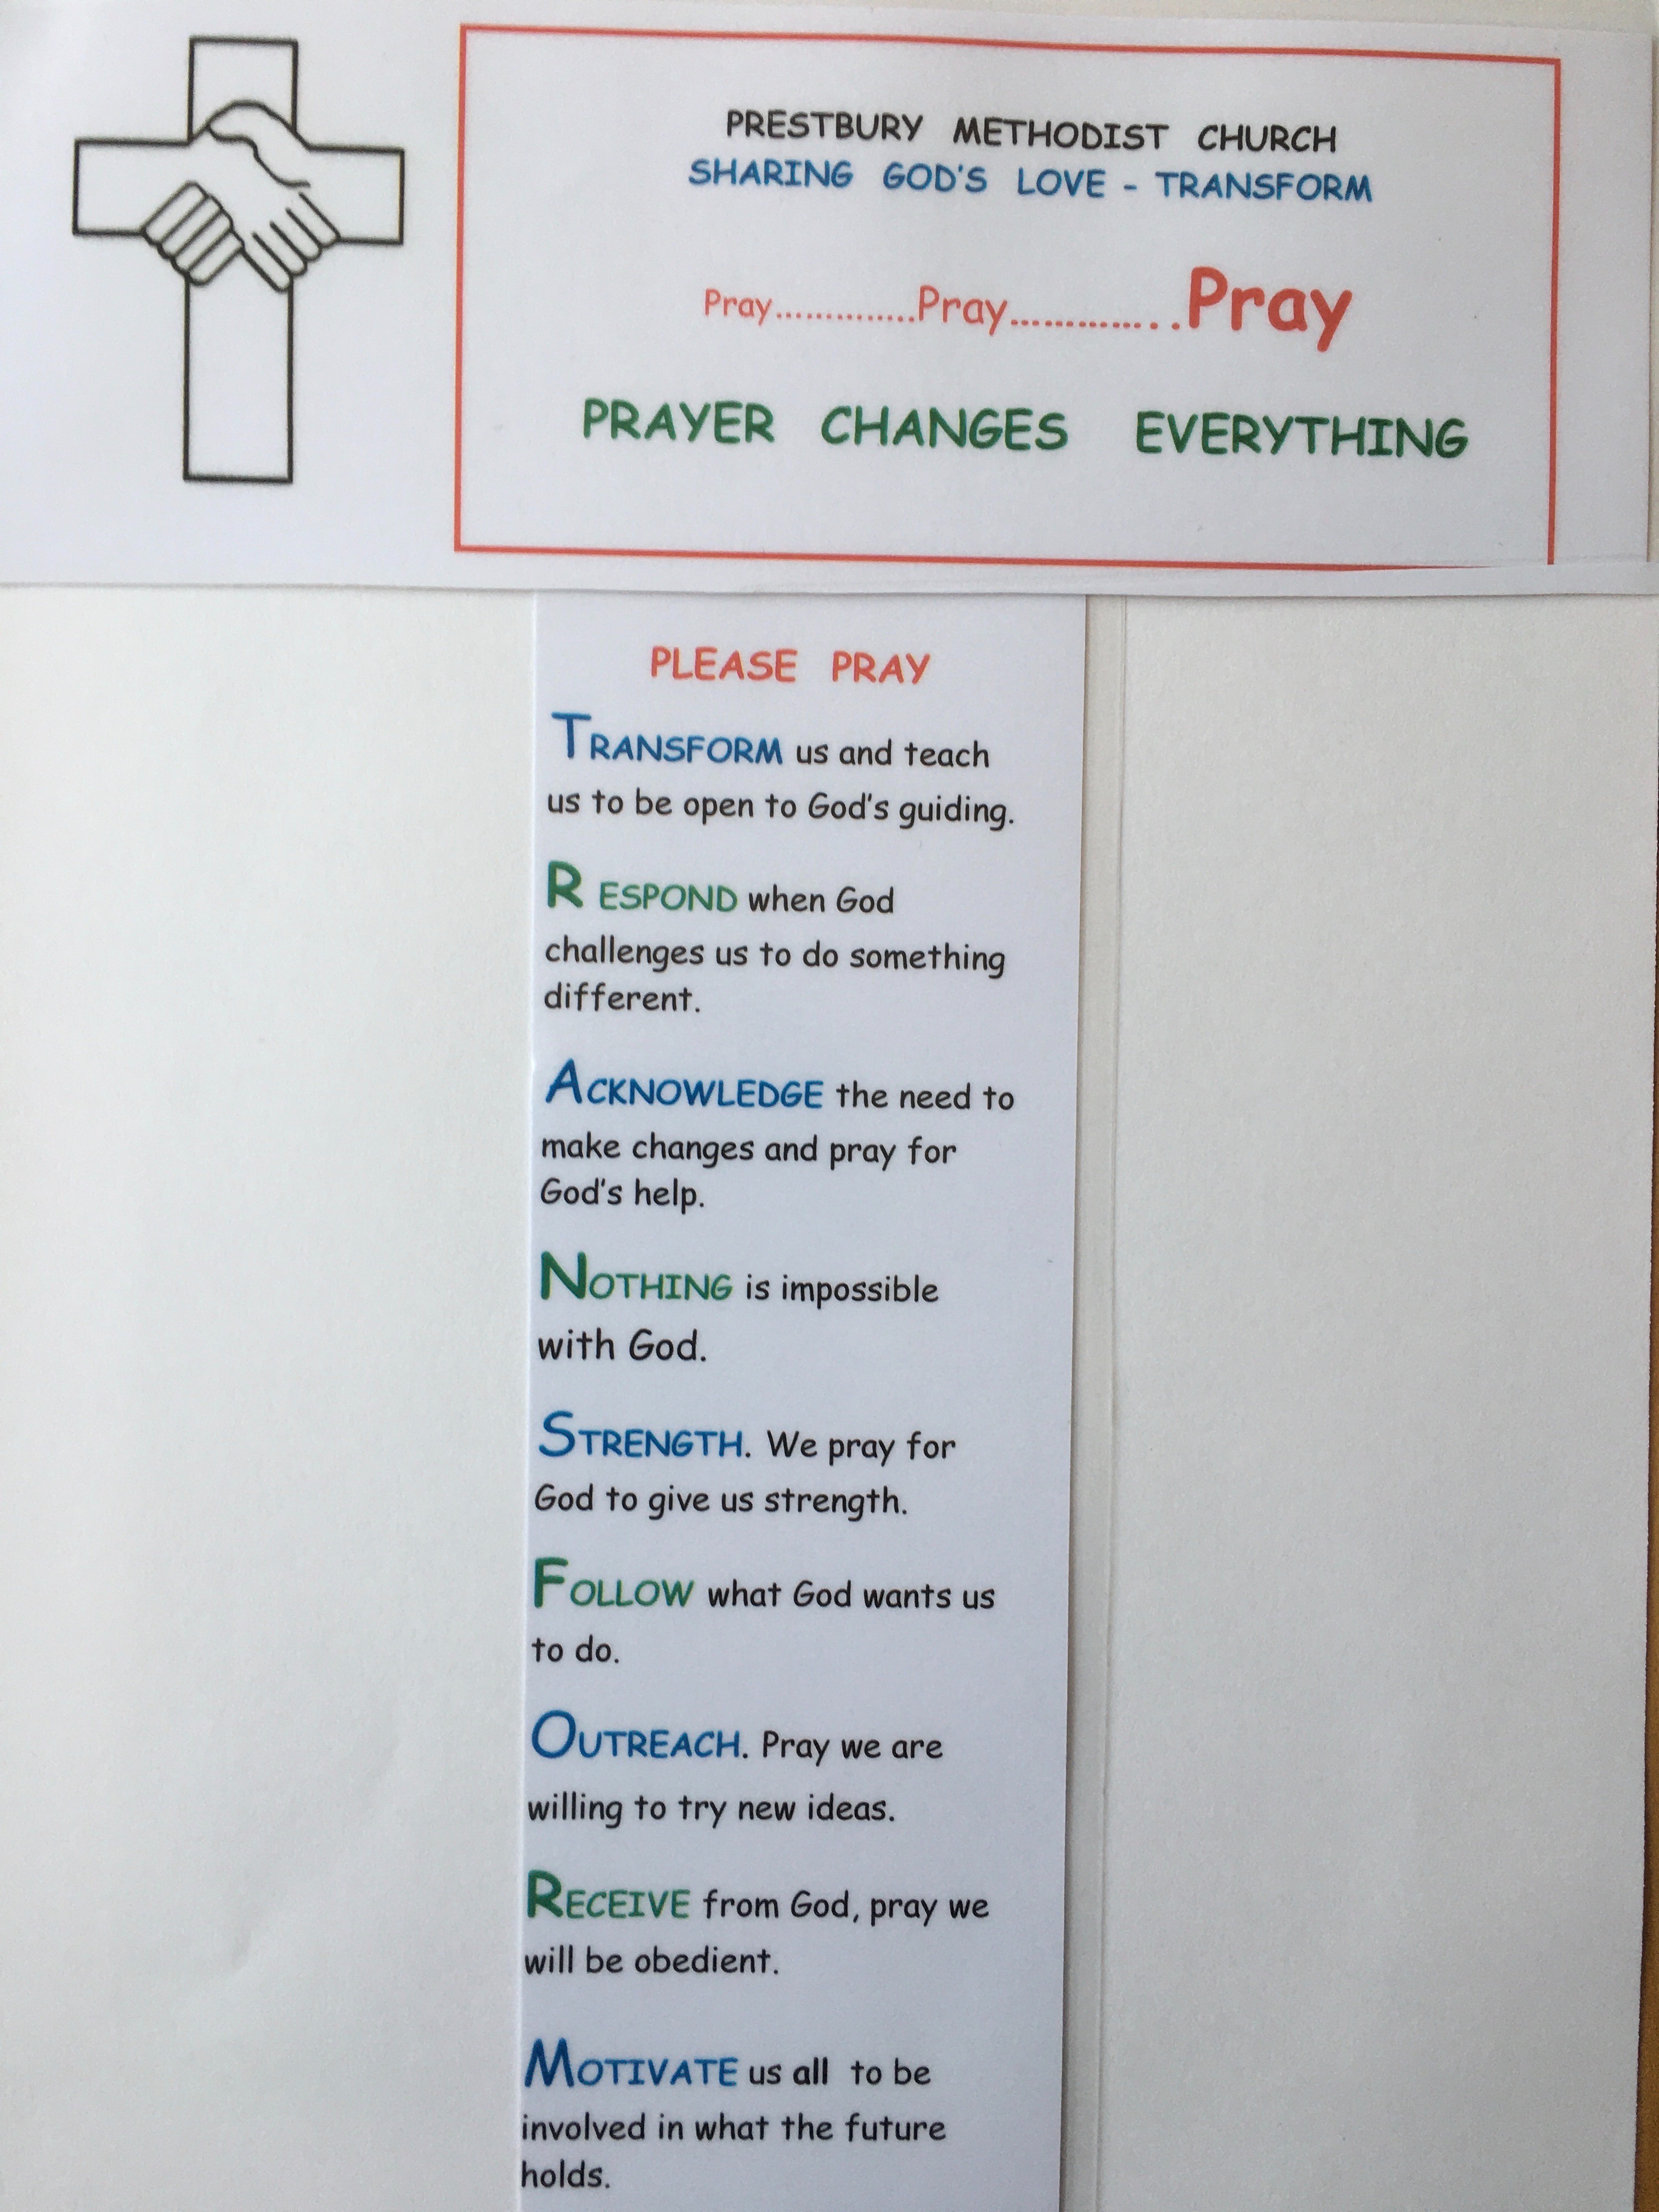 PRESTBURY METHODIST CHURCH
SHARING GOD'S LOVE - TRANSFORM
Pray..............Pray...............Pray
PRAYER CHANGES EVERYTHING
PLEASE PRAY
TRANSFORM us and teach
us to be open to God's guiding.
R ESPOND when God
challenges us to do something
different.
ACKNOWLEDGE the need to
make changes and pray for
God's help.
NOTHING is impossible
with God.
STRENGTH. We pray for
God to give us strength.
FOLLOW what God wants us
to do.
OUTREACH. Pray we are
willing to try new ideas.
RECEIVE from God, pray we
will be obedient.
MOTIVATE us all to be
involved in what the future
holds.